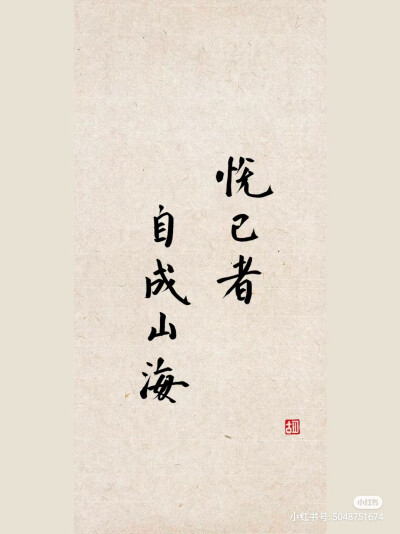 悦己者
自成山海
小红书
小红书号:5048751674